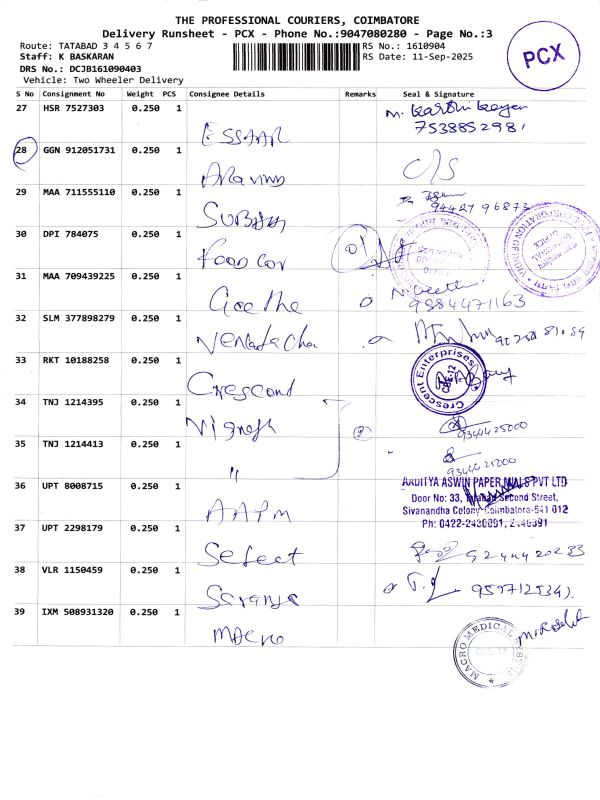 THE PROFESSIONAL COURIERS, COIMBATORE
Delivery Runsheet - PCX - Phone No.:9047080280 - Page No.:3
Route: TATABAD 3 4 5 6 7
RS No.: 1610904
Staff: K BASKARAN
RS Date: 11-Sep-2025
DRS No.: DCJB161090403
Vehicle: Two Wheeler Delivery
PCX
S No Consignment No Weight PCS Consignee Details Remarks Seal & Signature
27 HSR 7527303 0.250 1
ESSAAR
7538852981
28 GGN 912051731 0.250 1
Aravind
C/S
29 MAA 711555110 0.250 1
94427 96873
30 DPI 784075 0.250 1
Food Cor
31 MAA 709439225 0.250 1
Geetha
9884471163
32 SLM 377898279 0.250 1
33 RKT 10188258 0.250 1
Crescond
Crescent Enterprises
CBE-12
34 TNJ 1214395 0.250 1
Vignesh
9344425000
35 TNJ 1214413 0.250 1
"
36 UPT 8008715 0.250 1
AAPM
AADITYA ASWIN PAPER MILLS PVT LTD
Door No: 33, Tatabad Second Street,
Sivanandha Colony Coimbatore-641 012
Ph: 0422-2430091,
37 UPT 2298179 0.250 1
Select
38 VLR 1150459 0.250 1
39 IXM 508931320 0.250 1
Macro
MACRO MEDICAL